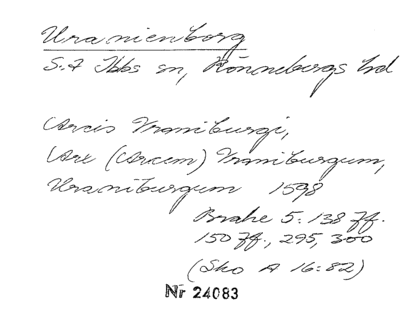 Uranienborg
S:t Ibbs sn, Rönnebergs hd
Arcis Vraniburgi,
Arx (Arcem) Vraniburgum,
Uraniburgum 1598
Brahe 5:138 ff.
150 ff., 295, 300
(Sko A 16:82)
Nr 24083